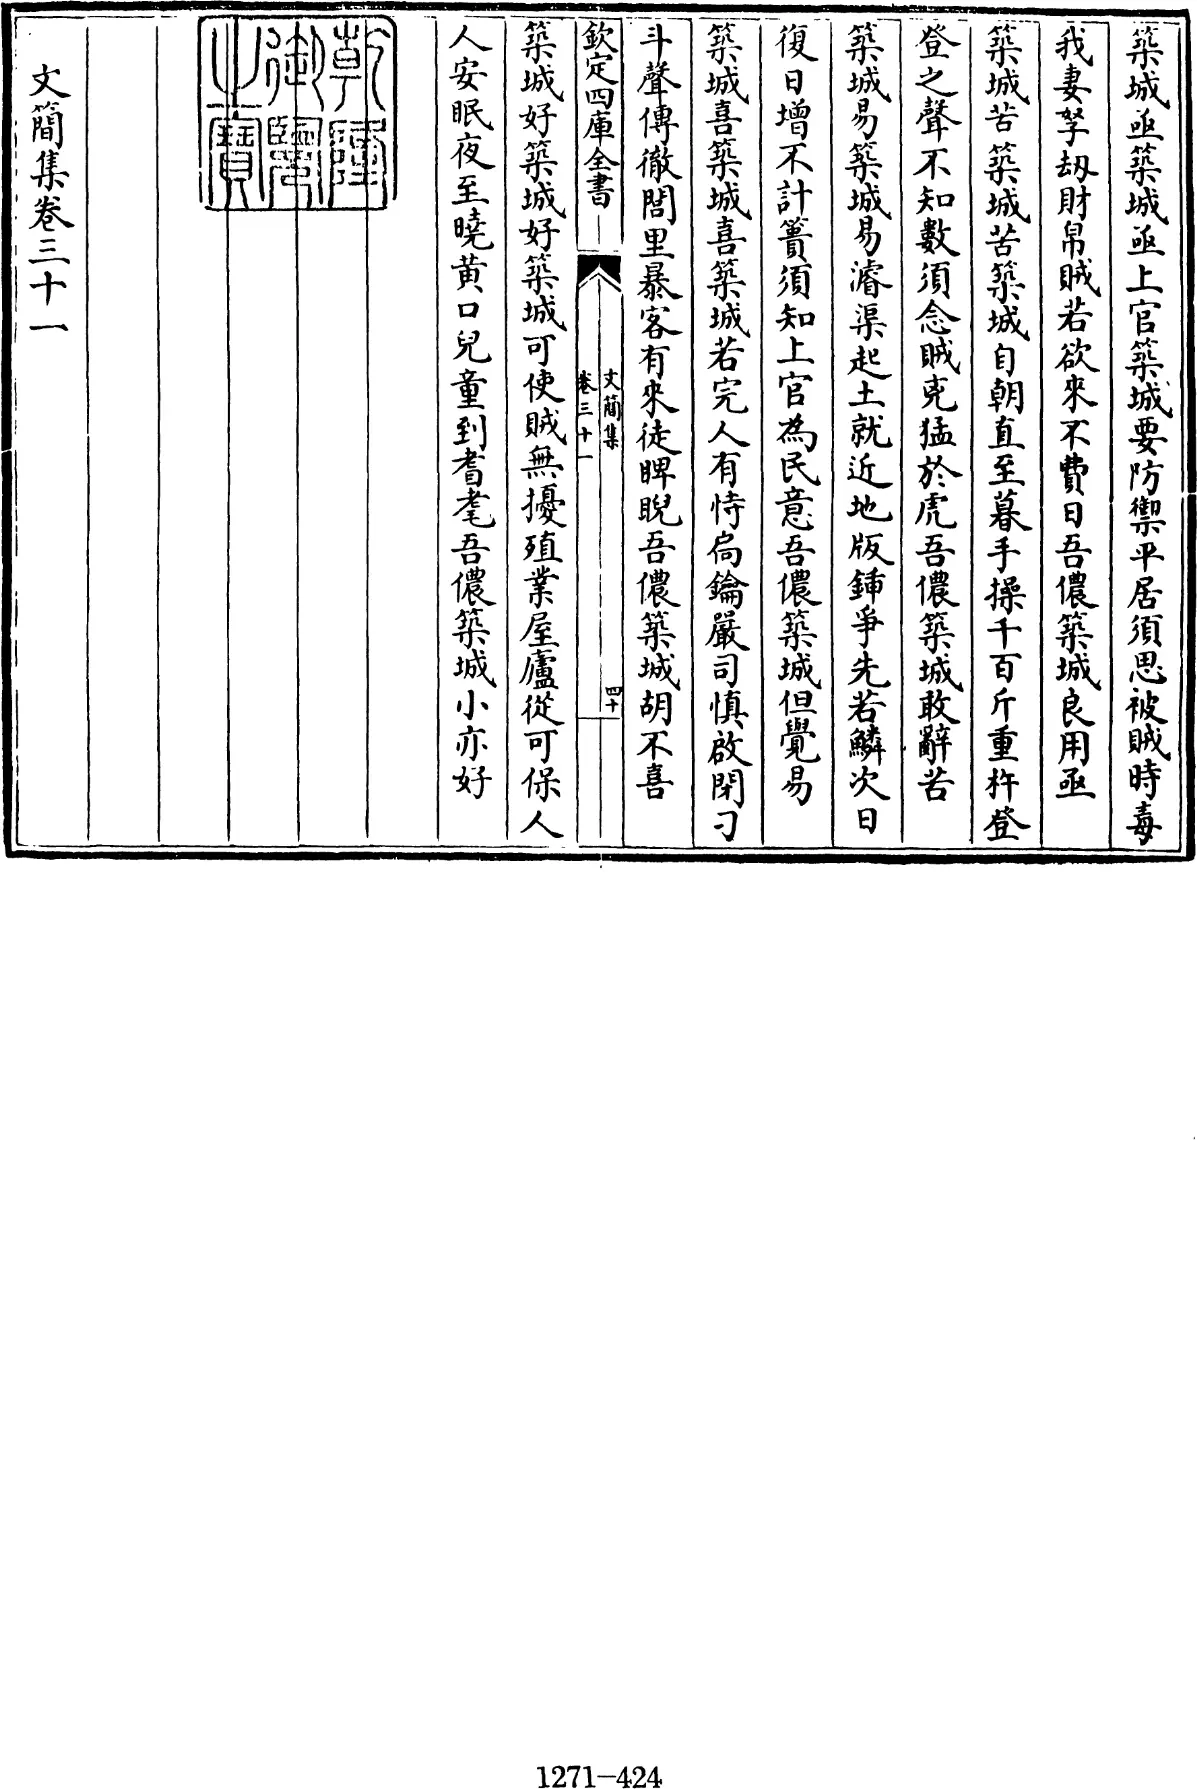 築城亟築城亟上官築城要防禦平居須思被賊時毒
我妻孥刼財帛賊若欲來不費日吾儂築城良用亟
築城苦築城苦築城自朝直至暮手操千百斤重杵登
登之聲不知數須念賊兇猛於虎吾儂築城敢辭苦
築城易築城易濬渠起土就近地版鍤爭先若鱗次日
復日增不計簣須知上官為民意吾儂築城但覺易
築城喜築城喜築城若完人有恃扃鑰嚴司慎啟閉刁
斗聲傳徹閭里暴客有來徒睥睨吾儂築城胡不喜
欽定四庫全書
文簡集
卷三十一
四十
築城好築城好築城可使賊無擾殖業屋廬從可保人
人安眠夜至曉黃口兒童到耆耄吾儂築城小亦好
乾隆御覽之寶
文簡集卷三十一
1271-424